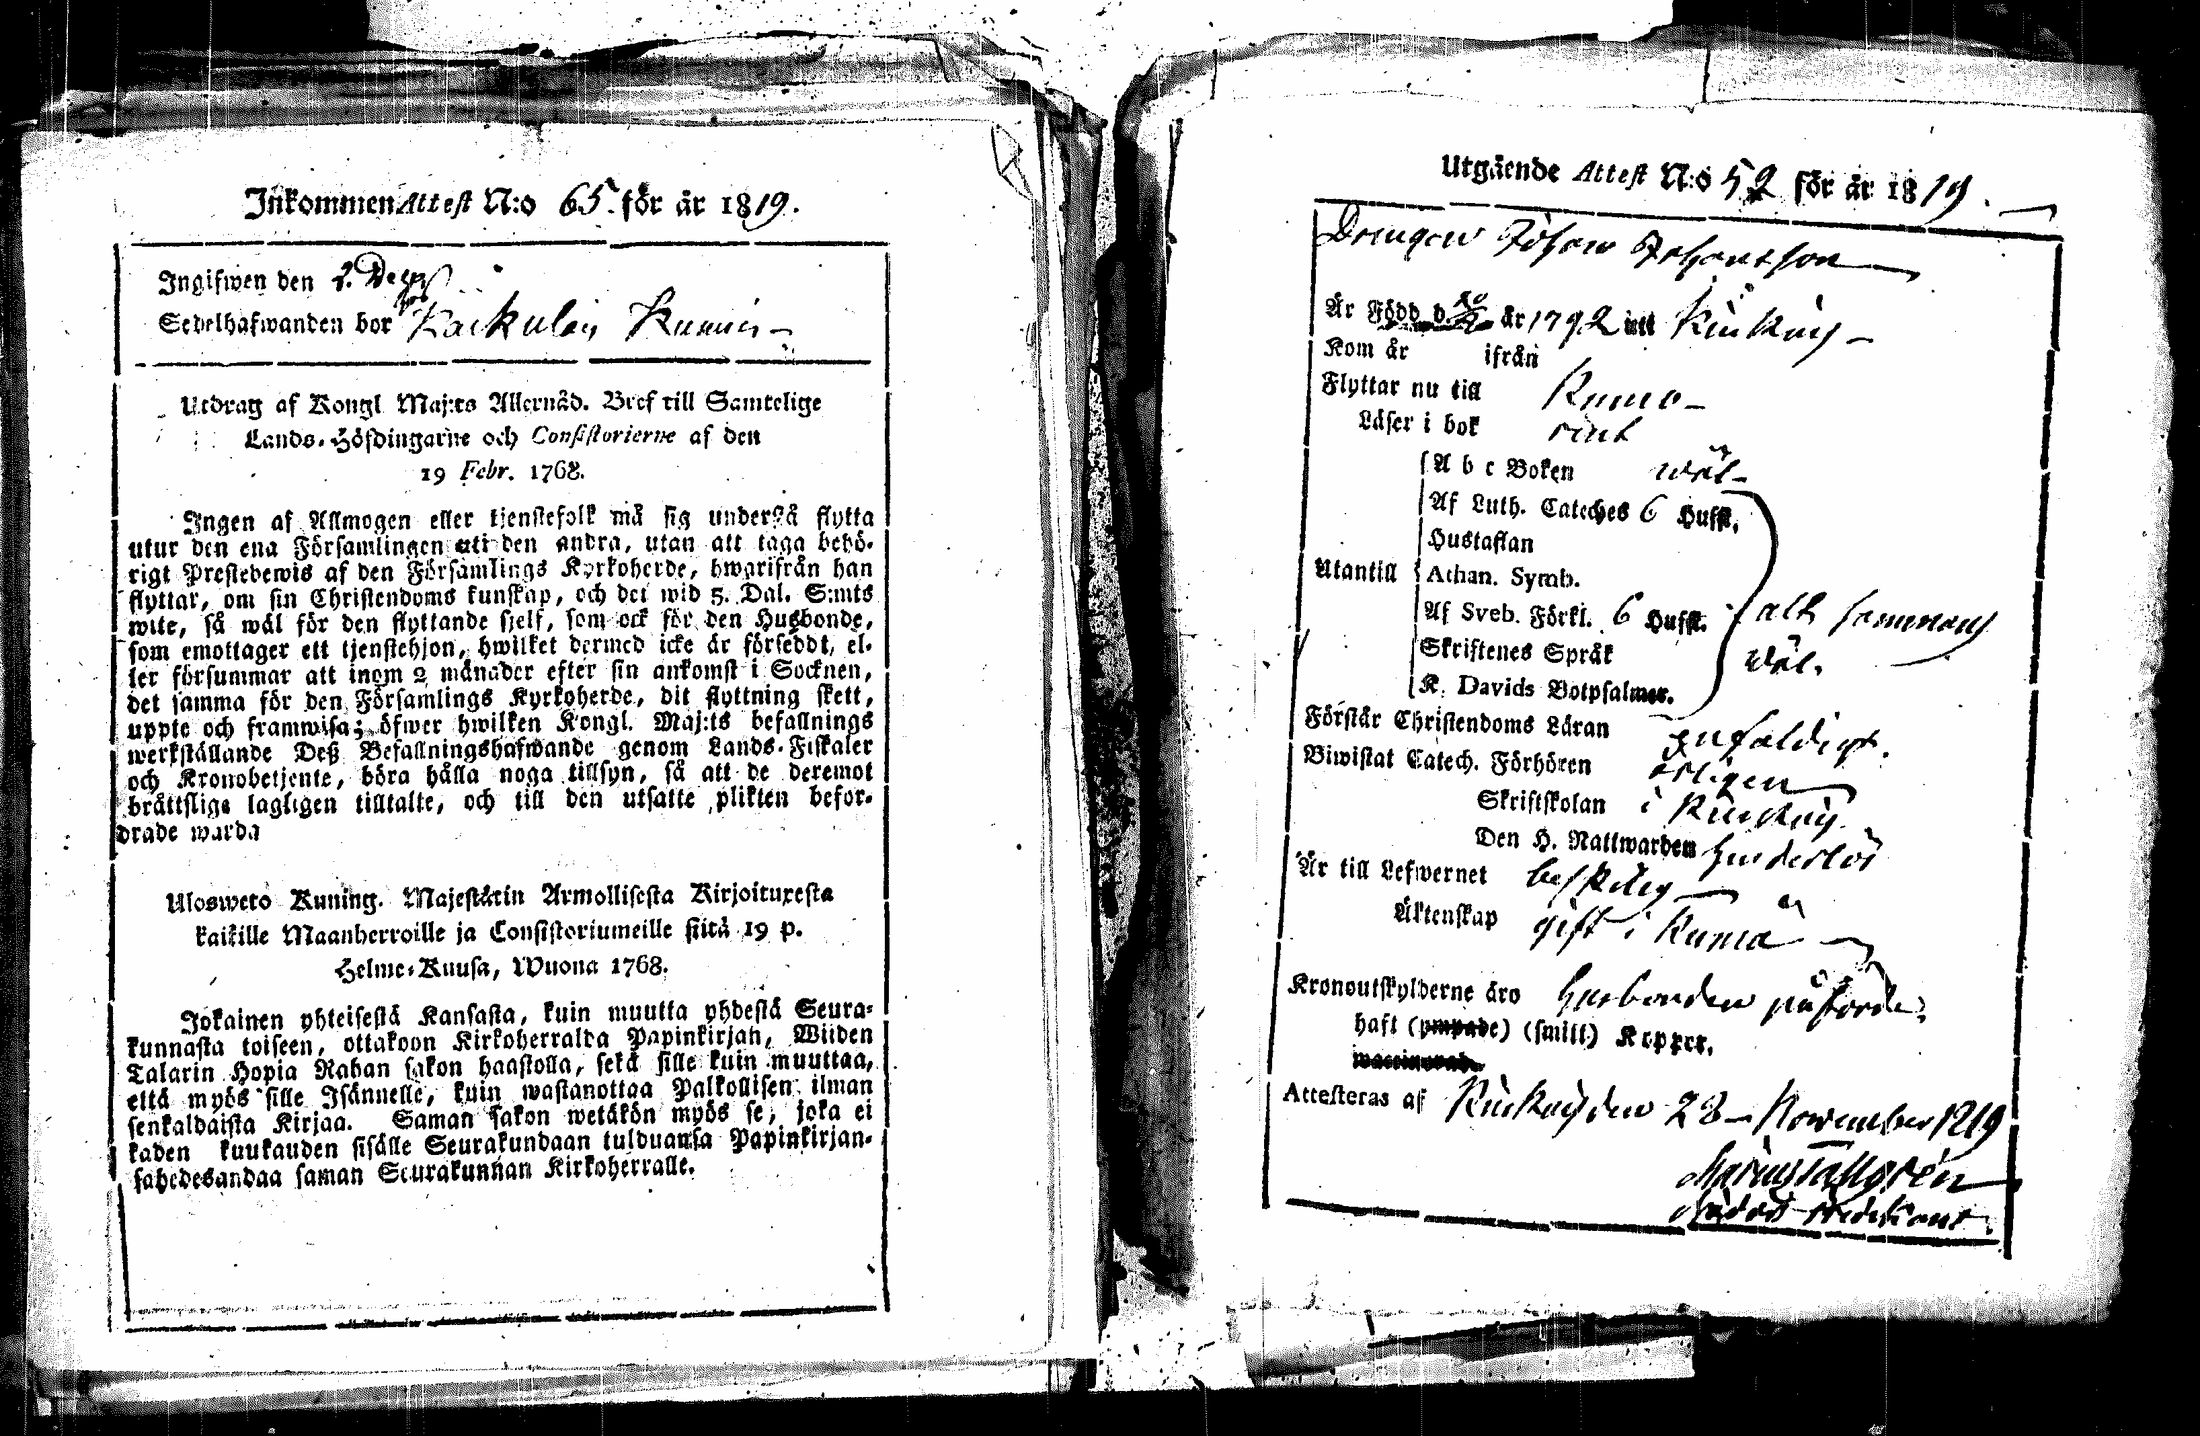 Inkommen Attest N:o 65. för år 1819.
Ingifwen den 2. Decbr
Sedelhafwanden bor Kumo
Utdrag af Kongl Maj:ts Allernåd. Bref till Samtelige
Lands-Höfdingarne och Consistorierne af den
19 Febr. 1768.
Ingen af Allmogen eller tjenstefolk må sig understå flytta
utur den ena Församlingen uti den andra, utan att taga behö-
rigt Prestebewis af den Församlings Kyrkoherde, hwarifrån han
flyttar, om sin Christendoms kunskap, och det wid 5. Dal. S:mts
wite, så wäl för den flyttande sjelf, som ock för den Husbonde,
som emottager ett tjenstehjon, hwilket dermed icke är förseddt, el-
ler försummar att inom 2 månader efter sin ankomst i Socknen,
det samma för den Församlings Kyrkoherde, dit flyttning skett,
uppte och framwisa; öfwer hwilken Kongl. Maj:ts befallnings
werkställande Deß Befallningshafwande genom Lands-Fiskaler
och Kronobetjente, böra hålla noga tillsyn, så att de deremot
bråttslige lagligen tilltalte, och till den utsatte plikten befor-
drade warda
Ulosweto Kuning. Majestätin Armollisesta Kirjoituxesta
kaikille Maanherroille ja Consistoriumeille siitä 19 p.
Helme-Kuusa, Wuona 1768.
Jokainen yhteisestä Kansasta, kuin muutta yhdestä Seura-
kunnasta toiseen, ottakoon Kirkoherralda Papinkirjan, Wiiden
Talarin Hopia Rahan sakon haastolla, sekä sille kuin muuttaa,
että myös sille Isännelle, kuin wastanottaa Palkollisen ilman
senkaldaista Kirjaa. Saman sakon wetäkön myös se, joka ei
kaden kuukauden sisälle Seurakundaan tulduansa Papinkirjan-
sahedesandaa saman Seurakunnan Kirkoherralle.
Utgående Attest N:o 52 för år 1819.
Drengen Johan Johansson
Är Född d. år 1792 uti Kiukais
Kom år ifrån
Flyttar nu till Kumo
Läser i bok rent
A b c Boken wäl
Af Luth. Cateches 6 Hufst.
Hustaflan
Utantill Athan. Symb.
Af Sveb. Förkl. 6 Hufst. alt sammans
Skriftenes Språk wäl.
K. Davids Botpsalmer.
Förstår Christendoms Läran enfaldigt.
Biwistat Catech. Förhören årligen
Skriftskolan i Kiukais
Den H. Nattwarden
Är till Lefwernet beskedlig
Äktenskap gift i Kumo
Kronoutskylderne äro husbonden påförde.
haft (ympade) (smitt.) Koppor.
Attesteras af Kiukais den 28 November 1819